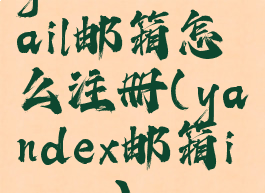 ail邮箱怎
么注册(ya
ndex邮箱i
)